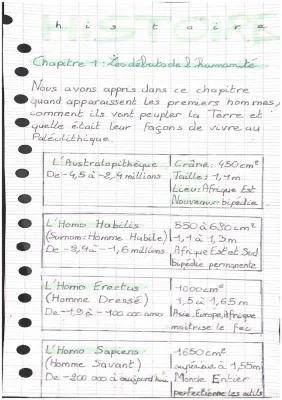 histoire
Chapitre 1 : Les débuts de l'humanité
Nous avons appris dans ce chapitre
quand apparaissent les premiers hommes,
comment ils vont peupler la Terre et
quelle était leur façons de vivre au
Paléolithique.
L'Australopithèque
De -4,5 à -2,4 millions
Crâne: 450 cm³
Taille: 1,1m
Lieu: Afrique Est
Nouveau: bipédie
L'Homo Habilis
(Surnom: Homme Habile)
De -2,4 à -1,6 millions
550 à 680 cm³
1,1 à 1,3m
Afrique Est et Sud
bipédie permanente
L'Homo Erectus
(Homme Dressé)
De -1,9 à -100 000 ans
1000 cm³
1,5 à 1,65m
Asie, Europe, Afrique
maîtrise le feu
L'Homo Sapiens
(Homme Savant)
De -200 000 à aujourd'hui
1650 cm³
supérieur à 1,55m
Monde Entier
perfectionne les outils